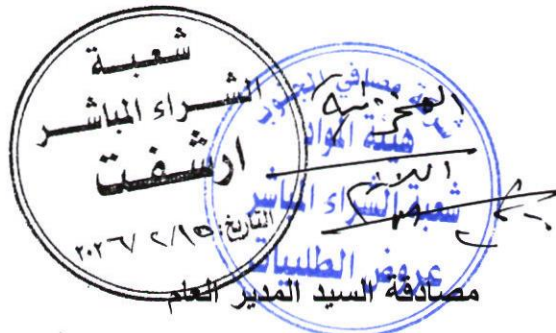 شعبة
الشراء المباشر
ارشفت
التاريخ: ٢/١٥ / ٢٠٢٦
شركة مصافي الجنوب
هيئة المواد
شعبة الشراء المباشر
عروض الطلبيات
مصادقة السيد المدير العام